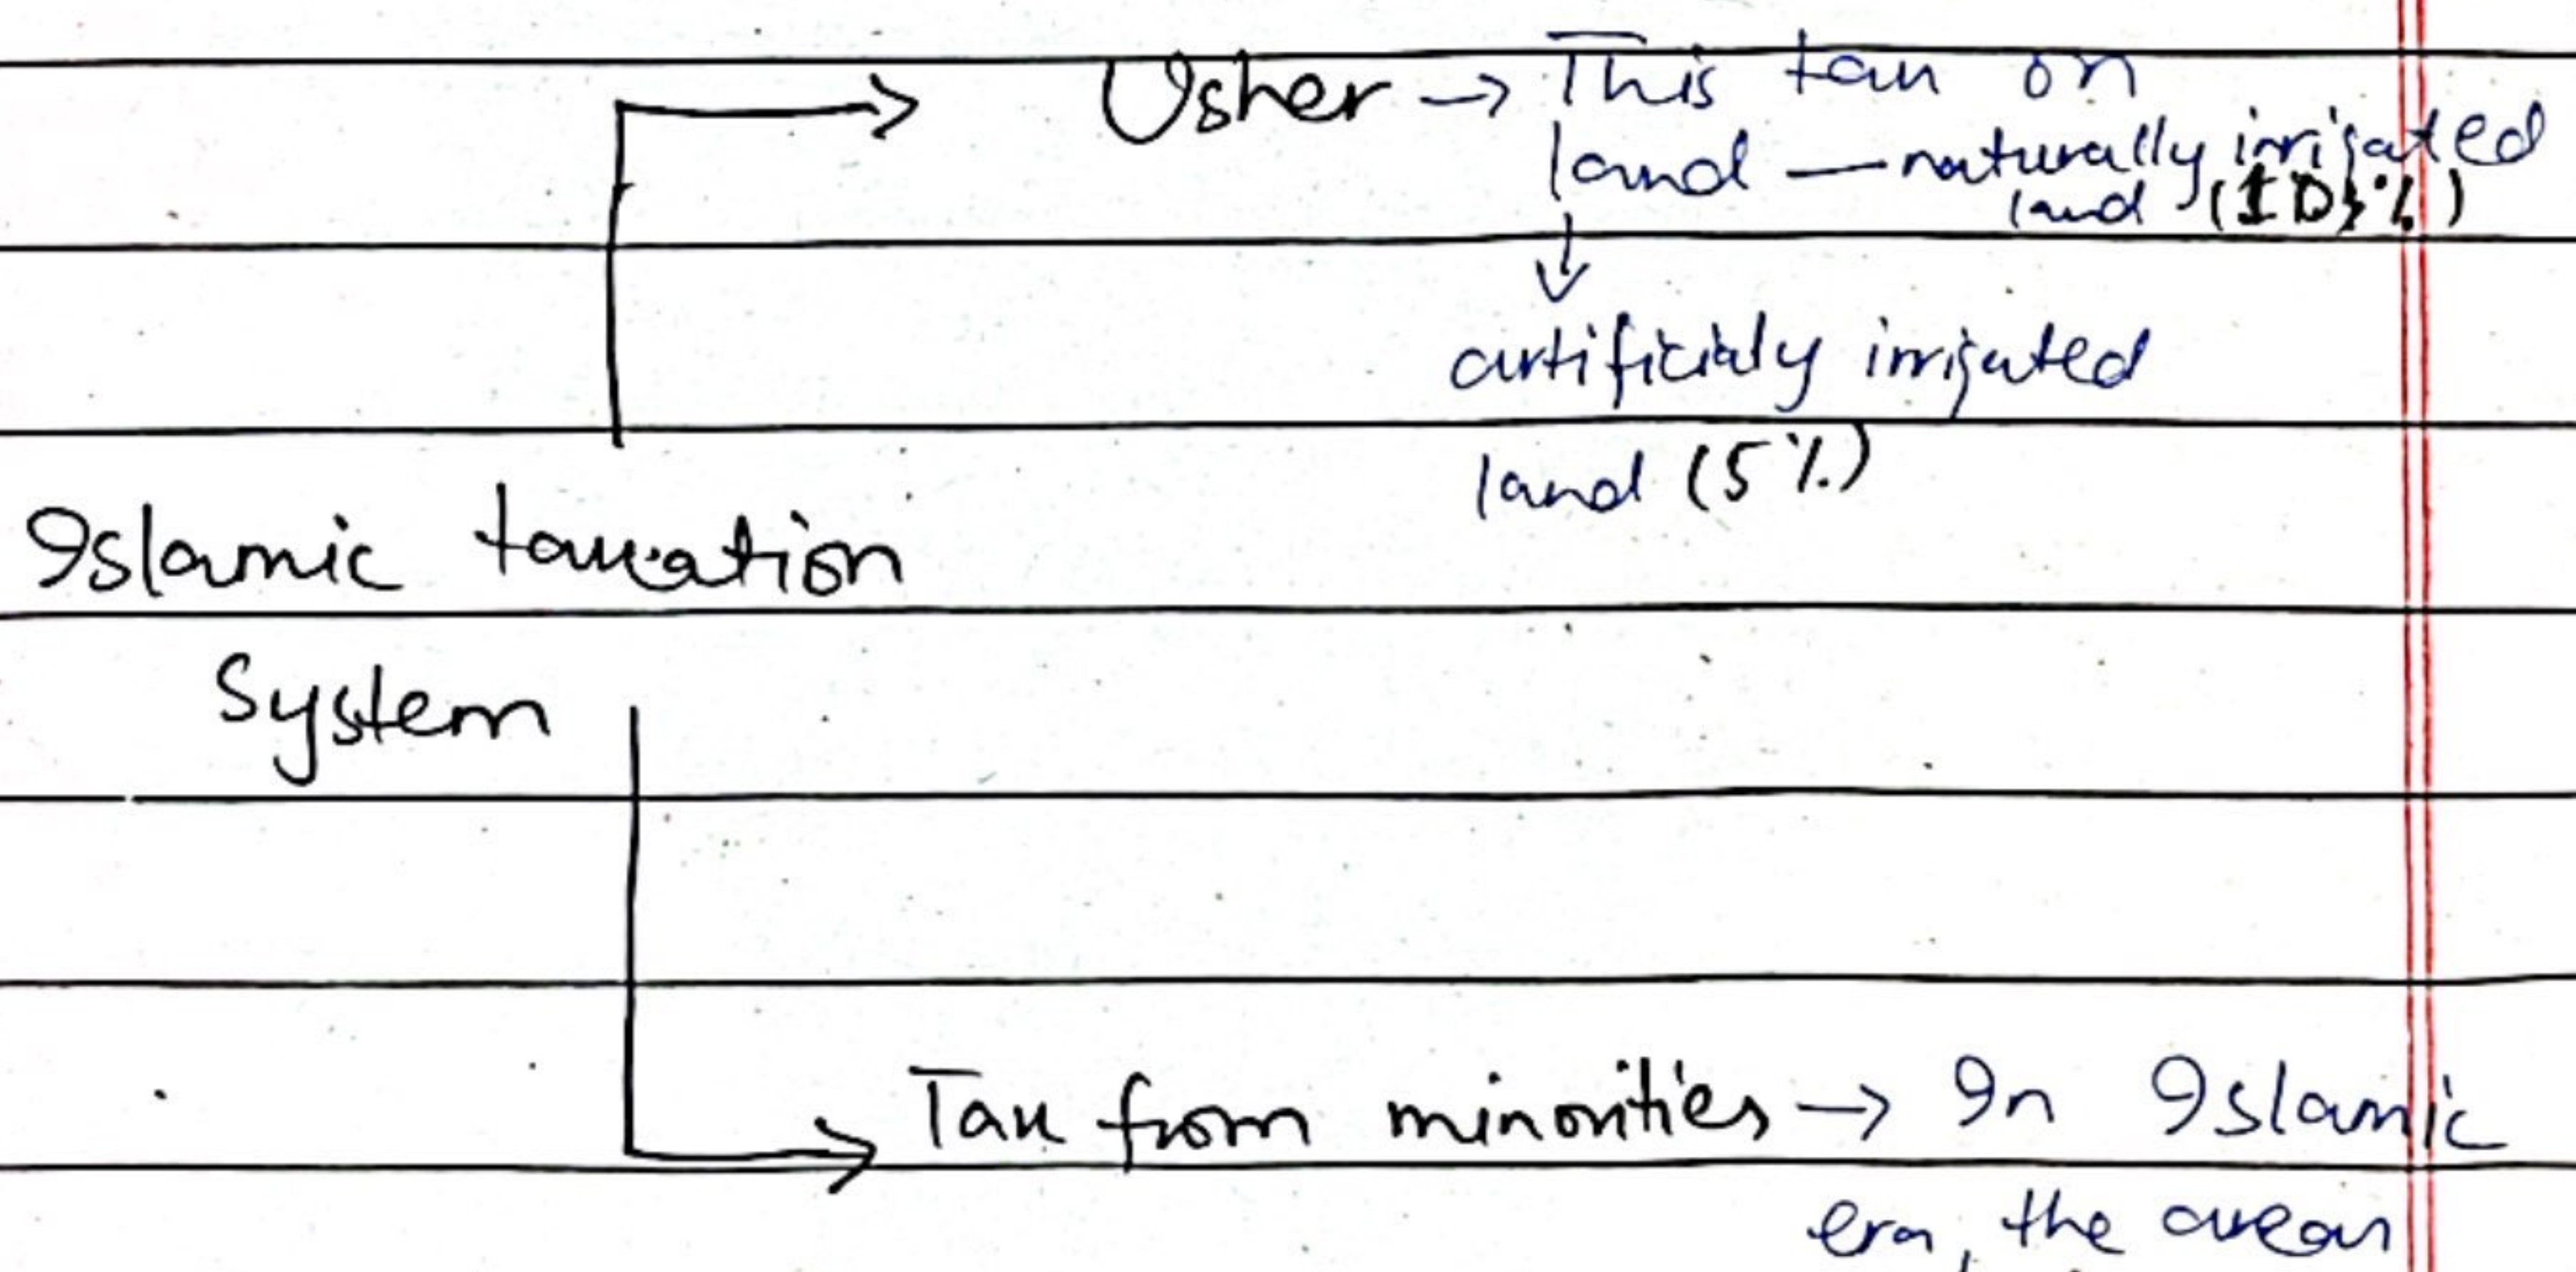 Usher → This tax on
land — naturally irrigated
land (10%)
↓
artificialy irrigated
land (5%)
Islamic taxation
System
Tax from minorities → In Islamic
era, the area